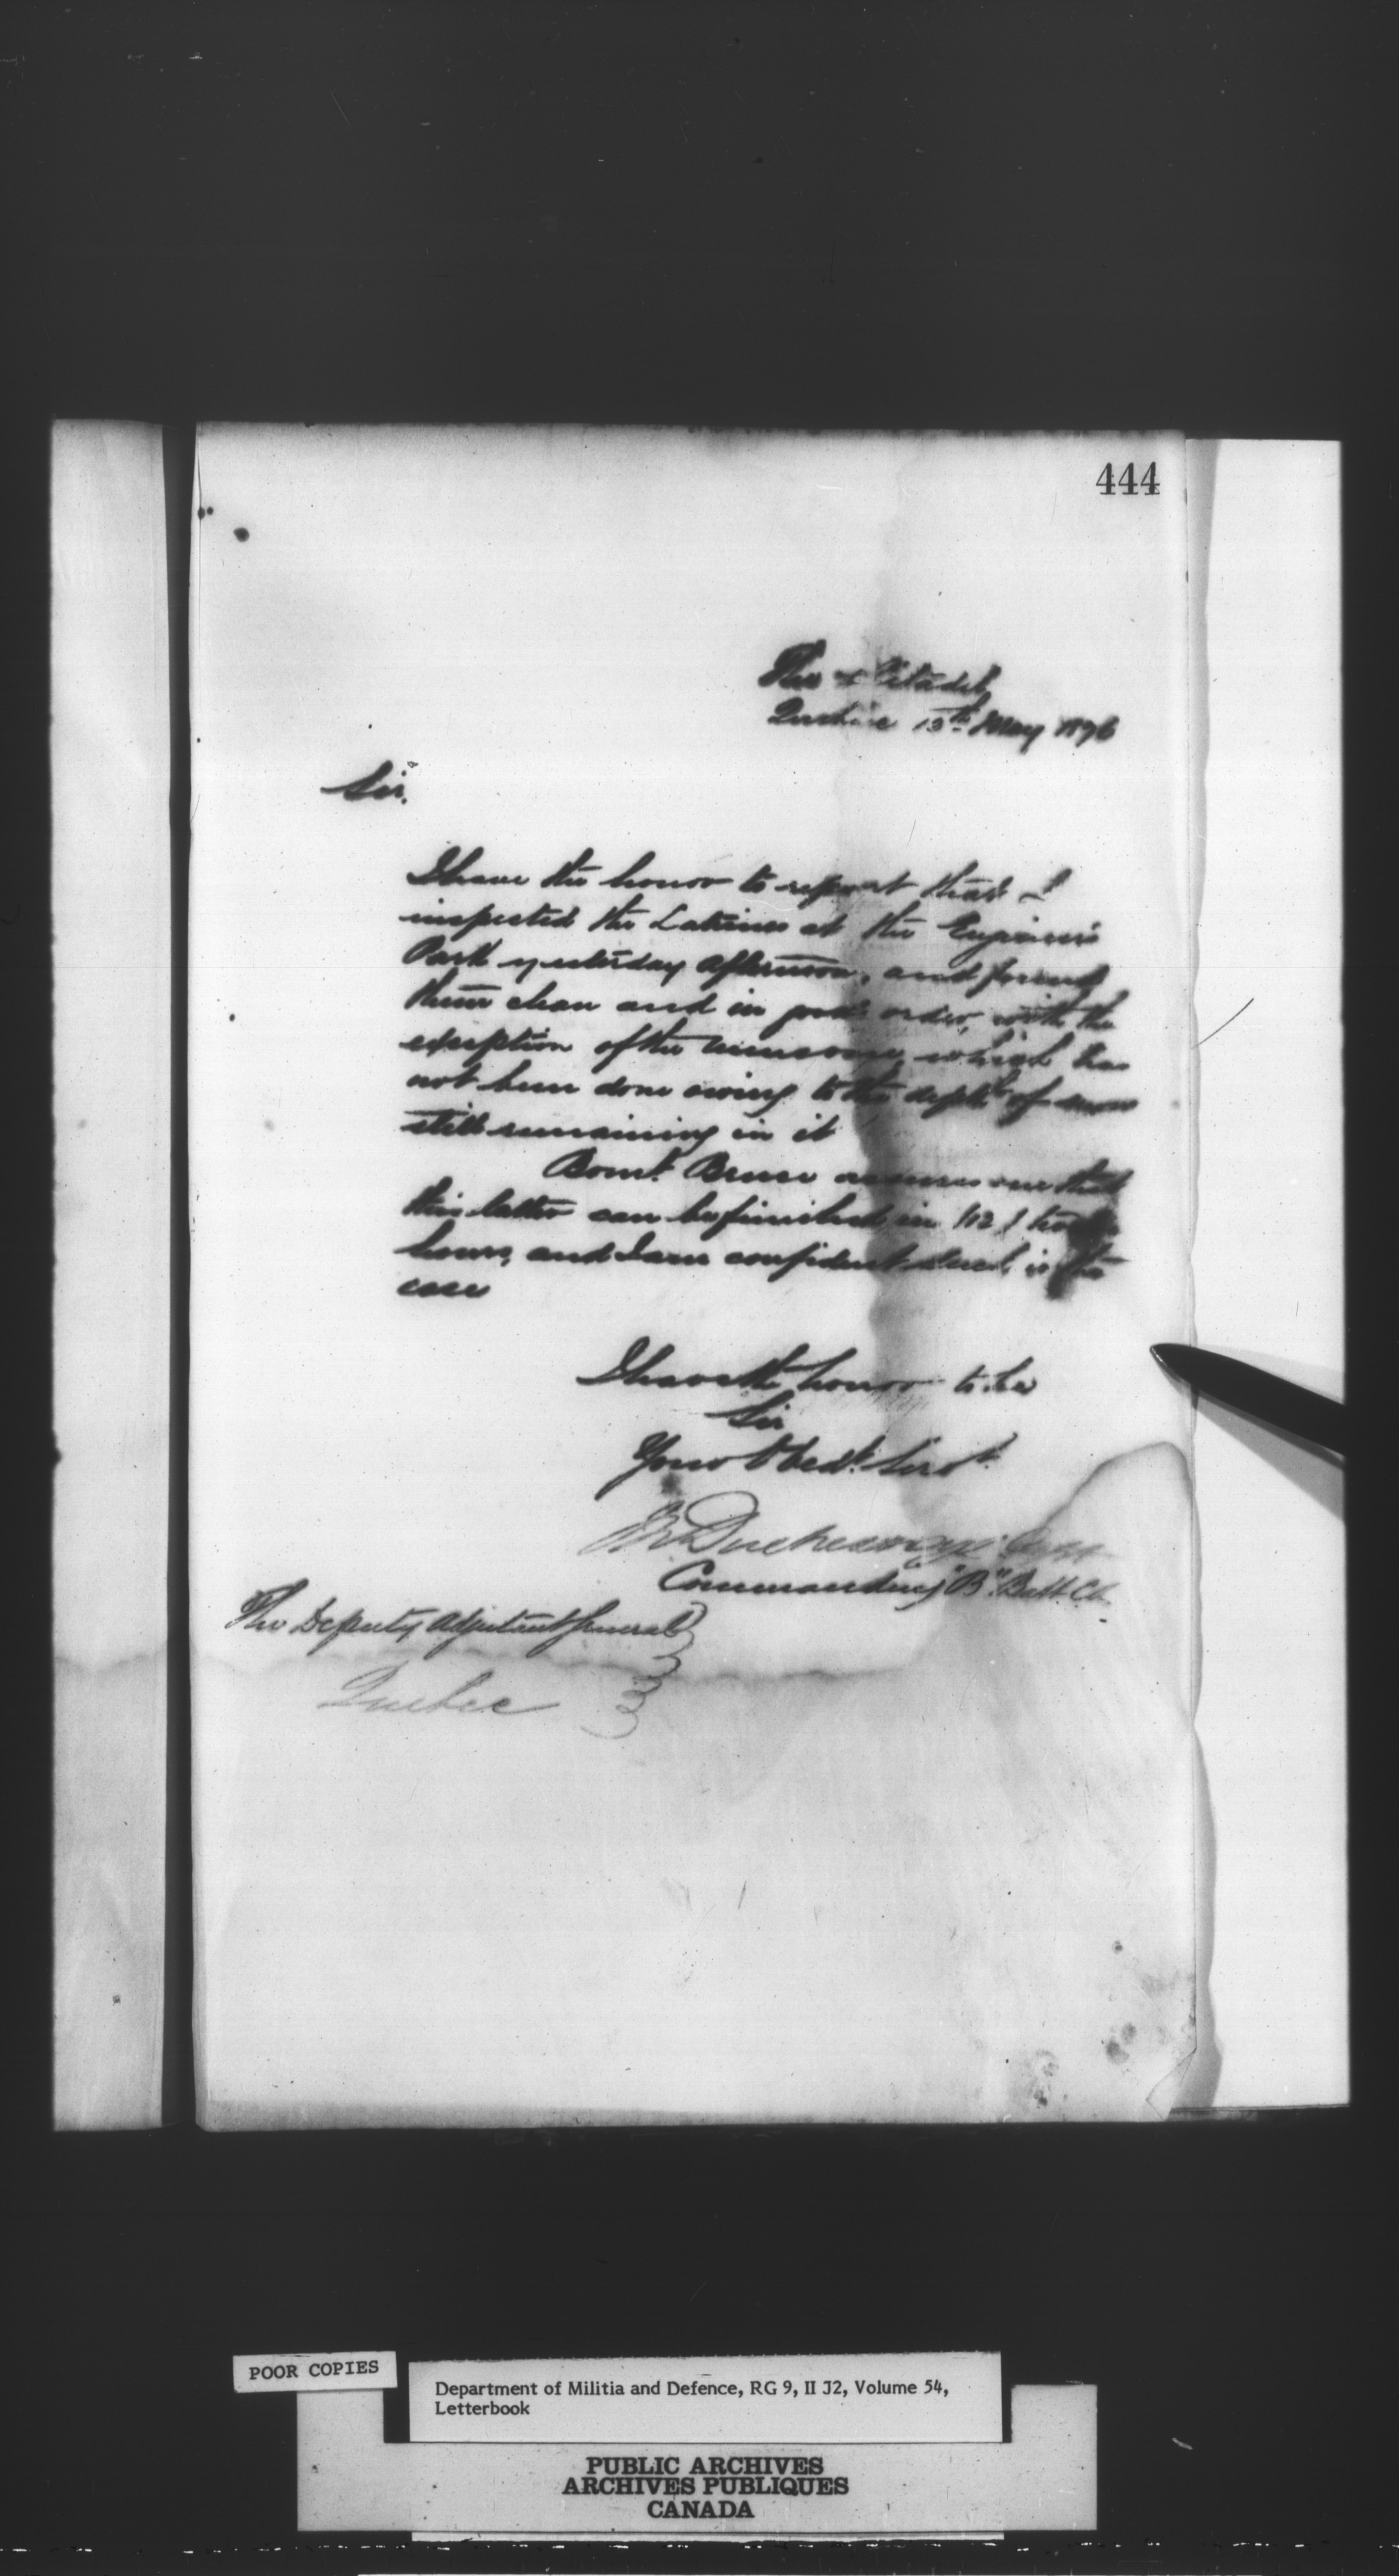 444
The Citadel,
Quebec 13th May 1876
Sir,
I have the honor to report that I
inspected the Latrines at the Engineers
Park yesterday afternoon, and found
them clean and in good order, with the
exception of the which has
not been done owing to the depth of snow
still remaining in it
Bomr. Bruce assures me that
this latter can be finished in (12)
hours, and I am confident such is the
case
I have the honor to be
Sir
Your Obedt. Servt.
Duchesnay Capt
Commanding "B" Batt.
The Deputy Adjutant General
Quebec
POOR COPIES
Department of Militia and Defence, RG 9, II J2, Volume 54,
Letterbook
PUBLIC ARCHIVES
ARCHIVES PUBLIQUES
CANADA